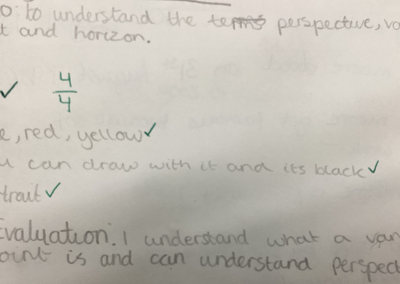 o: to understand the terms perspective, va
t and horizon.
✓ 4/4
e, red, yellow ✓
u can draw with it and its black ✓
trait ✓
Evaluation: I understand what a van
oint is and can understand perspect